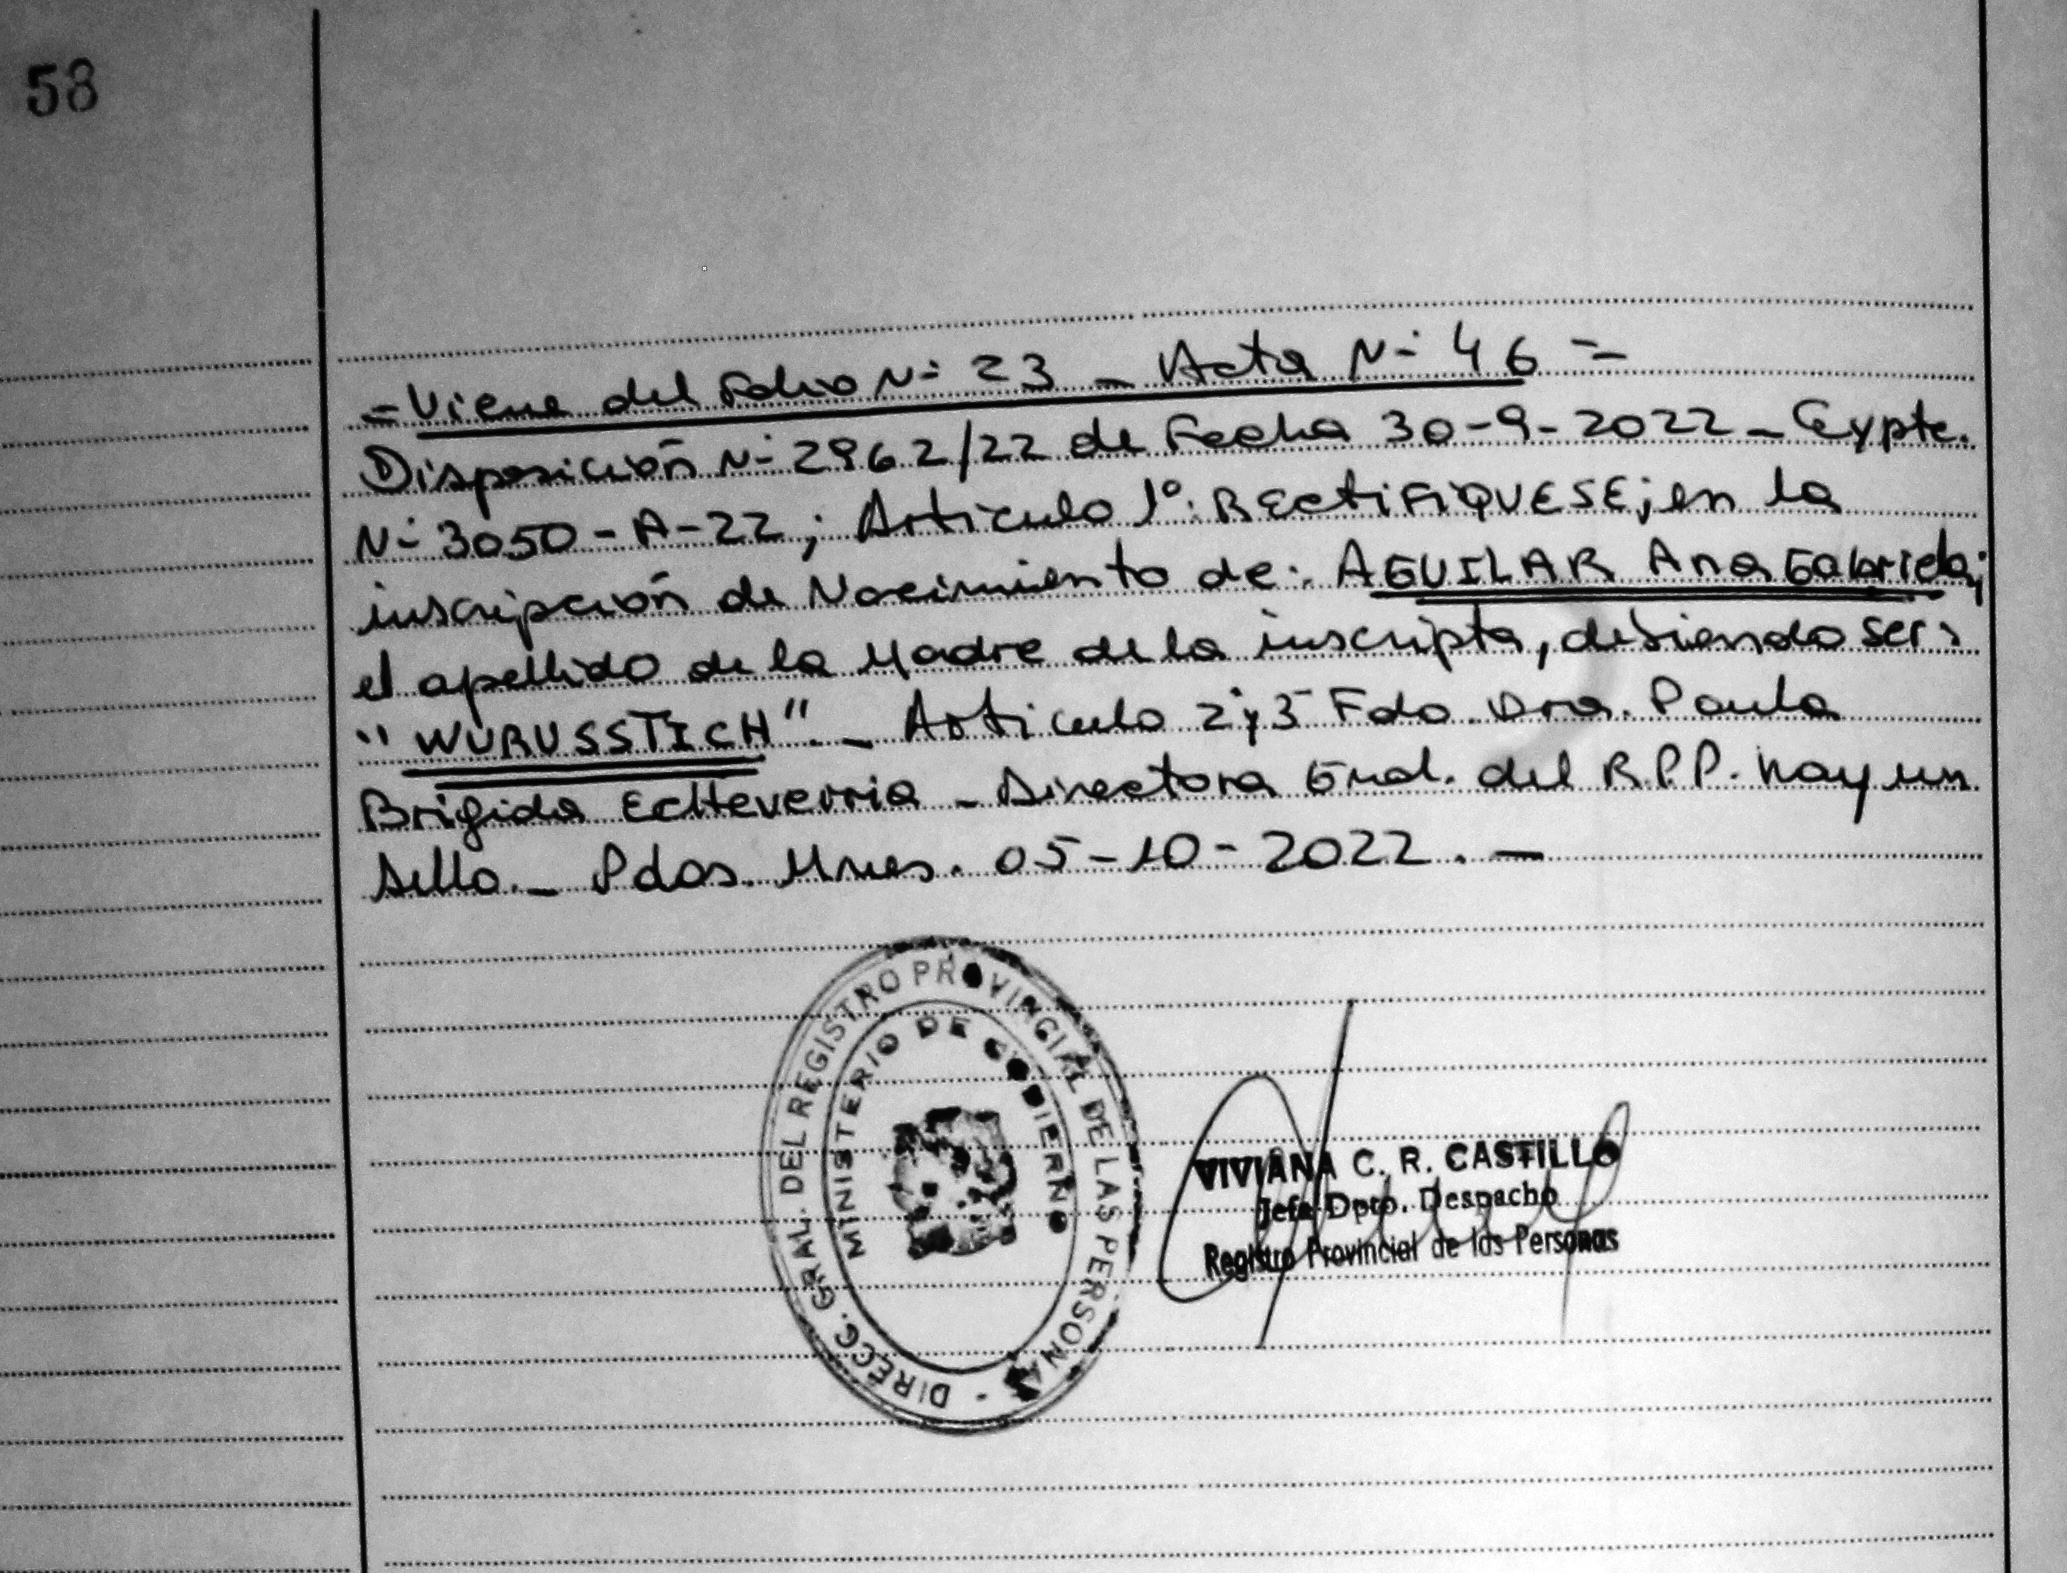 58
= Viene del Folio N- 23 - Acta N- 46 =
Disposición N- 2962/22 de Fecha 30-9-2022 - Expte.
N- 3050-A-22; Articulo 1º: RECTIFIQUESE; en la
inscripción de Nacimiento de: AGUILAR Ana Gabriela;
el apellido de la Madre de la inscripta, debiendo ser:
"WURUSSTICH". - Articulo 2 y 3 Fdo. Dra. Paula
Brigida Echeverria - Directora Gral. del R.P.P. hay un
Sello. - Pdas. Mnes. 05-10-2022. -
DIRECC. GRAL. DEL REGISTRO PROVINCIAL DE LAS PERSONAS -
MINISTERIO DE GOBIERNO
VIVIANA C. R. CASTILLO
Jefa Dpto. Despacho
Registro Provincial de las Personas